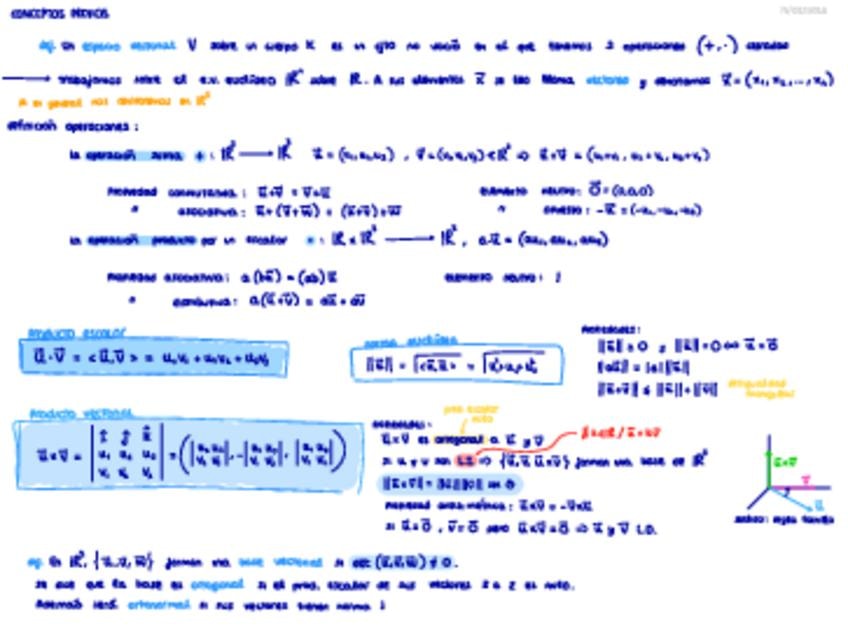 CONCEPTOS PREVIOS
Def. Un espacio vectorial V sobre un cuerpo K es un no vacío en el que tenemos 2 operaciones (+, ·)
→ Trabajamos sobre el e.v. euclídeo ℝⁿ sobre ℝ. A sus elementos x⃗ se les llama vectores y denotamos x⃗ = (x₁, x₂, ..., xₙ)
en general nos en ℝ³
definición operaciones:
La operación suma + : ℝ³ → ℝ³ u⃗ = (u₁,u₂,u₃) , v⃗ = (v₁,v₂,v₃) ∈ ℝ³ ⇒ u⃗+v⃗ = (u₁+v₁, u₂+v₂, u₃+v₃)
Propiedad conmutativa: u⃗+v⃗ = v⃗+u⃗ elemento neutro: 0⃗ = (0,0,0)
" asociativa: u⃗+(v⃗+w⃗) = (u⃗+v⃗)+w⃗ " : -u⃗ = (-u₁,-u₂,-u₃)
La operación producto por un escalar · : ℝ x ℝ³ → ℝ³, a·u⃗ = (au₁, au₂, au₃)
Propiedad asociativa: a(bu⃗) = (ab)u⃗ elemento neutro: 1
" : a(u⃗+v⃗) = au⃗ + av⃗
Producto escalar
u⃗·v⃗ = <u⃗,v⃗> = u₁v₁ + u₂v₂ + u₃v₃
norma euclídea
||u⃗|| = √<u⃗,u⃗> = √u₁²+u₂²+u₃²
PROPIEDADES:
||u⃗|| ≥ 0 y ||u⃗|| = 0 ⇔ u⃗ = 0⃗
||au⃗|| = |a| ||u⃗||
||u⃗+v⃗|| ≤ ||u⃗|| + ||v⃗|| desigualdad triangular
Producto vectorial
u⃗×v⃗ = | î ĵ k̂ | u₁ u₂ u₃ | v₁ v₂ v₃ | = ( |u₂ u₃ v₂ v₃|, -|u₁ u₃ v₁ v₃|, |u₁ u₂ v₁ v₂| )
PROPIEDADES:
prod escalar nulo
u⃗×v⃗ es ortogonal a u⃗ y v⃗
Si u y v son L.I. ⇒ {u⃗, v⃗, u⃗×v⃗} forman una base de ℝ³
||u⃗×v⃗|| = ||u|| ||v|| sin θ
Propiedad anticonmutativa: u⃗×v⃗ = -v⃗×u⃗
Si u⃗=0⃗, v⃗=0 pero u⃗×v⃗=0⃗ ⇒ u⃗ y v⃗ L.D.
u×v
v⃗
u⃗
Def. En ℝ³, {u⃗,v⃗,w⃗} forman una base vectorial si det(u⃗,v⃗,w⃗) ≠ 0.
Se dice que la base es ortogonal si el prod. escalar de sus vectores 2 a 2 es nulo.
Además será ortonormal si sus vectores tienen norma 1